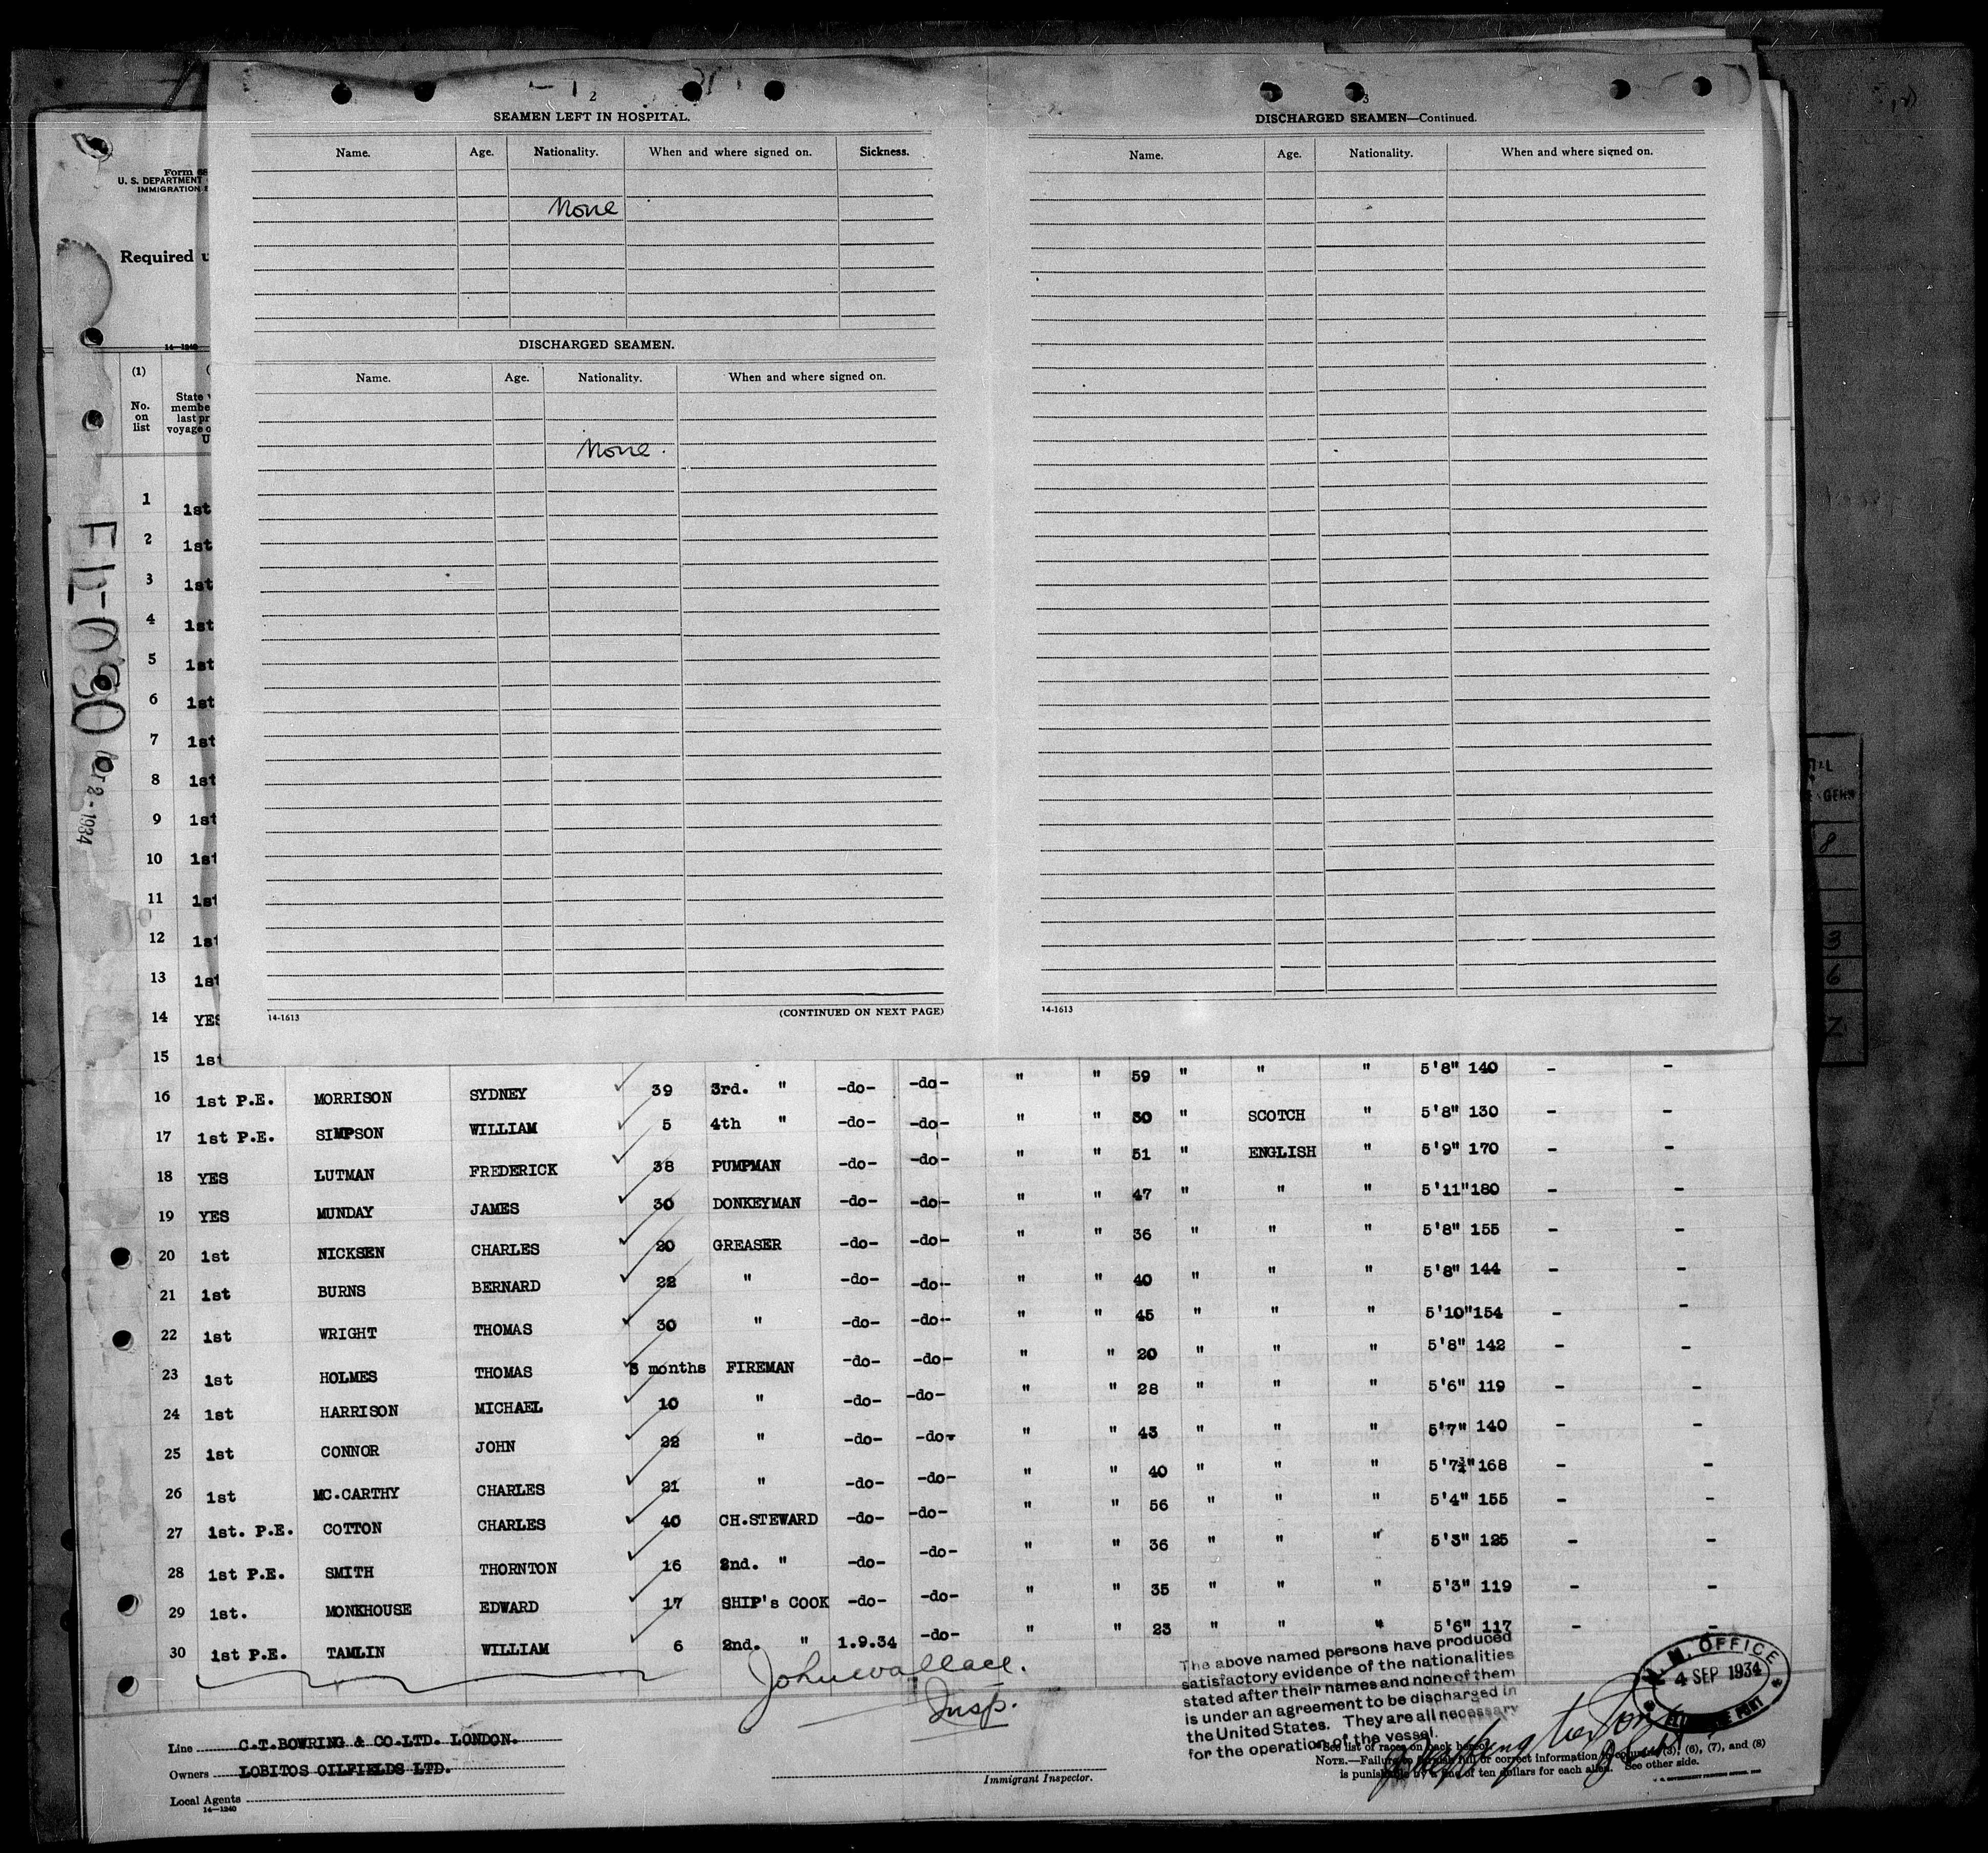 2
SEAMEN LEFT IN HOSPITAL.
Name. Age. Nationality. When and where signed on. Sickness.
None
DISCHARGED SEAMEN.
Name. Age. Nationality. When and where signed on.
None.
14-1613 (CONTINUED ON NEXT PAGE)
3
DISCHARGED SEAMEN—Continued.
Name. Age. Nationality. When and where signed on.
14-1613
Form
U. S. DEPARTMENT
IMMIGRATION
Required
14—1240
(1)
No. on list
State
last
voyage
1 1st
2 1st
3 1st
4 1st
5 1st
6 1st
7 1st
8 1st
9 1st
10 1st
11 1st
12 1st
13 1st
14 YES
15 1st
" " 59 " " " 5'8" 140 - -
16 1st P.E. MORRISON SYDNEY 39 3rd. " -do- -do-
" " 30 " SCOTCH " 5'8" 130 - -
17 1st P.E. SIMPSON WILLIAM 5 4th " -do- -do-
" " 51 " ENGLISH " 5'9" 170 - -
18 YES LUTMAN FREDERICK 38 PUMPMAN -do- -do-
" " 47 " " " 5'11" 180 - -
19 YES MUNDAY JAMES 30 DONKEYMAN -do- -do-
" " 36 " " " 5'8" 155 - -
20 1st NICKSEN CHARLES 20 GREASER -do- -do-
" " 40 " " " 5'8" 144 - -
21 1st BURNS BERNARD 22 " -do- -do-
" " 45 " " " 5'10" 154 - -
22 1st WRIGHT THOMAS 30 " -do- -do-
" " 20 " " " 5'8" 142 - -
23 1st HOLMES THOMAS 3 months FIREMAN -do- -do-
" " 28 " " " 5'6" 119 - -
24 1st HARRISON MICHAEL 10 " -do- -do-
" " 43 " " " 5'7" 140 - -
25 1st CONNOR JOHN 22 " -do- -do-
" " 40 " " " 5'7¾" 168 - -
26 1st MC.CARTHY CHARLES 21 " -do- -do-
" " 56 " " " 5'4" 155 - -
27 1st. P.E. COTTON CHARLES 40 CH.STEWARD -do- -do-
" " 36 " " " 5'3" 125 - -
28 1st P.E. SMITH THORNTON 16 2nd. " -do- -do-
" " 35 " " " 5'3" 119 - -
29 1st. MONKHOUSE EDWARD 17 SHIP's COOK -do- -do-
" " 23 " " " 5'6" 117 - -
30 1st P.E. TAMLIN WILLIAM 6 2nd. " 1.9.34 -do-
John Wallace.
Insp.
The above named persons have produced
satisfactory evidence of the nationalities
stated after their names and none of them
is under an agreement to be discharged in
the United States. They are all necessary
for the operation of the vessel.
OFFICE
4 SEP 1934
PORT
Line C.T.BOWRING & CO.LTD. LONDON.
Owners LOBITOS OILFIELDS LTD.
Local Agents
14—1240
Immigrant Inspector.
*See list of races on back hereof.
NOTE.—Failure to furnish full or correct information in columns (3), (6), (7), and (8)
is punishable by a fine of ten dollars for each alien. See other side.
2-1934
8
3
6